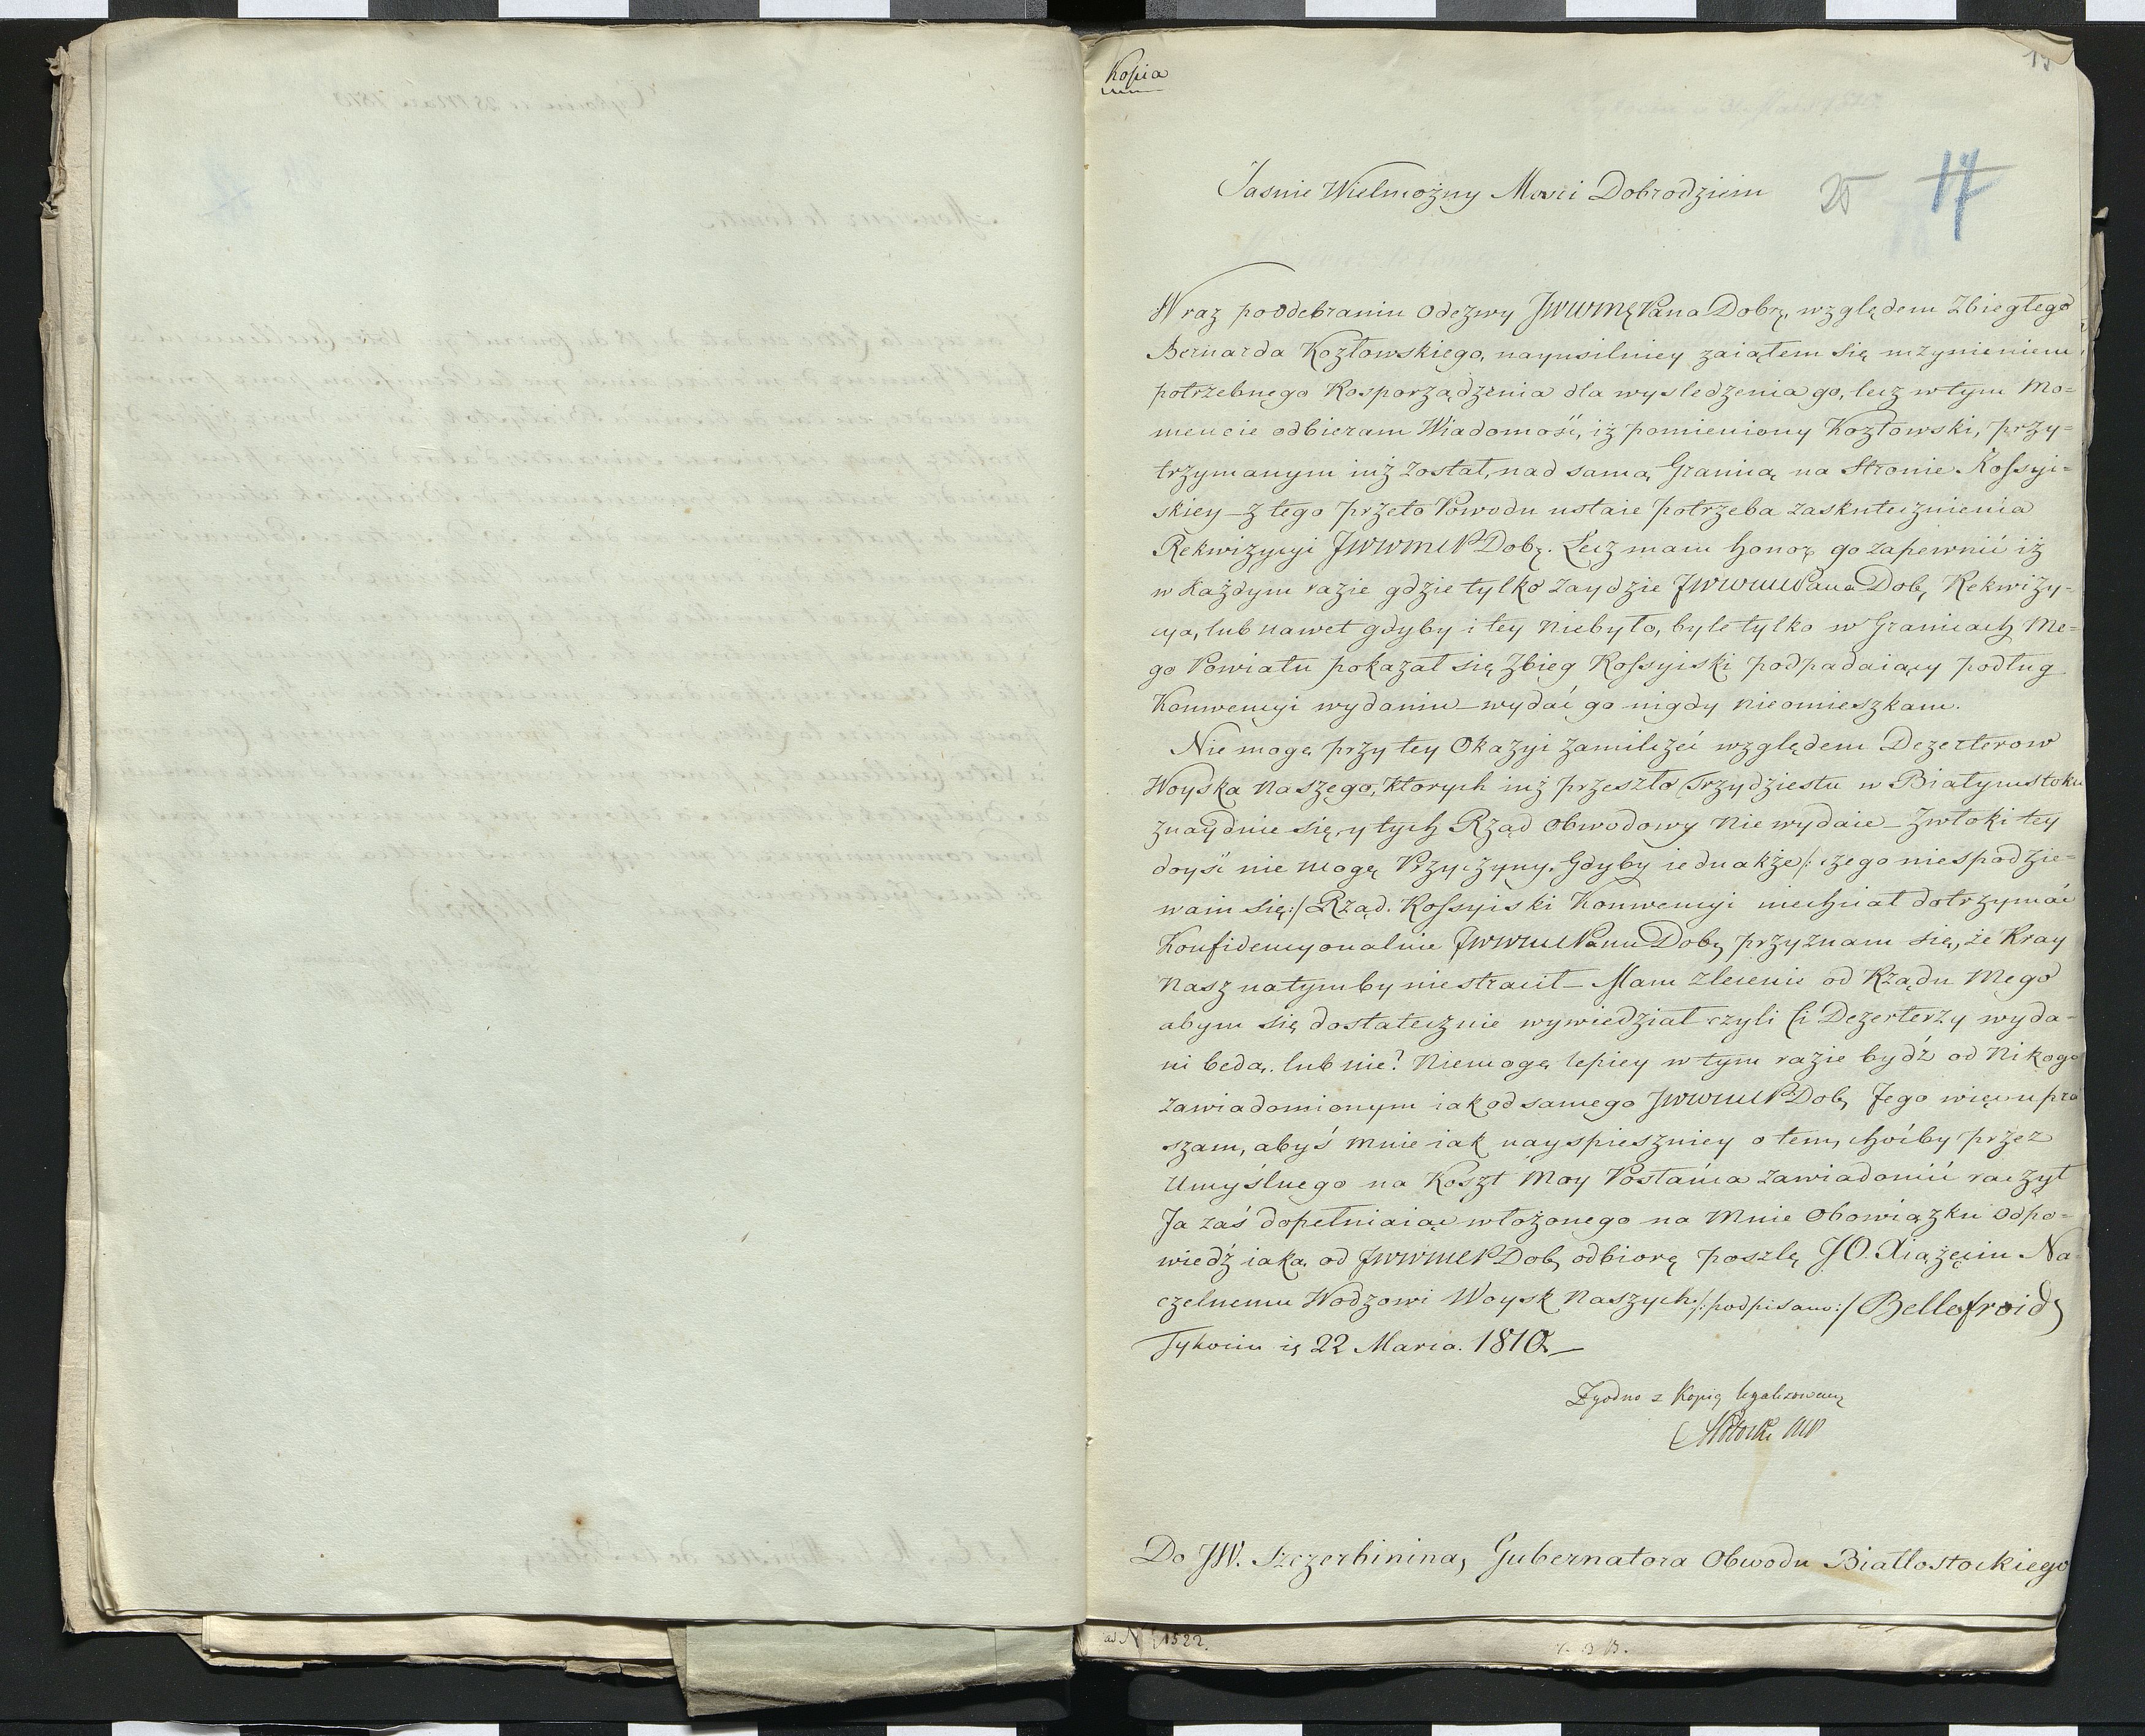 Kopia
15
Jasnie Wielmożny Mosci Dobrodzieiu
25 17
W raz poodebraniu odezwy JWWMę Pana Dobrz, względem Zbiegłego
Bernarda Kozłowskiego, nayusilniey zaiąłem się uczynieniem
potrzebnego Rosporządzenia dla wysledzenia go, lecz w tym Mo=
mencie odbieram Wiadomość, iż pomieniony Kozłowski, przy=
trzymanym iuż został, nad samą Granicą na Stronie Rossyi=
skiey – z tego przeto Powodu ustaie potrzeba zaskutecznienia
Rekwizycyi JWWMCPDobr. Lecz mam honor go zapewnić iż
w każdym razie gdzie tylko zaydzie JWWMCPana Dob, Rekwizy=
cya, lub nawet gdyby i tey niebyło, byle tylko w Granicach Me=
go Powiatu pokazał się Zbieg Rossyiski podpadaiący podług
Konwencyi wydaniu – wydać go nigdy nieomieszkam.
Nie mogę przy tey Okazyi zamilczeć względem Dezerterow
Woyska Naszego, ktorych iuż przeszło Trzydziestu w Białymstoku
znayduie się, y tych Rząd Obwodowy nie wydaie – Zwłoki tey
doyść nie mogę Przyczyny. Gdyby iednakże /: czego niespodzie=
wam się :/ Rząd Rossyiski Konwencyi niechciał dotrzymać
Konfidencyonalnie JWWMCPanu Dob, przyznam się, że Kray
Nasz natymby niestracił – Mam zlecenie od Rządu Mego
abym się dostatecznie wywiedział czyli Ci Dezerterzy wyda=
ni będą, lub nie? Niemogę lepiey w tym razie bydź od Nikogo
zawiadomionym iak od samego JWWMCPDob, Jego więc upra
szam, abyś mnie iak nayspieszniey o tem, choćby przez
Umyślnego na Koszt Moy Posłańca zawiadomić raczył
Ja zaś dopełniaiąc włożonego na Mnie Obowiązku Odpo=
wiedź iaką od JWWMCPDob, odbiorę poszlę JO. Xiążęciu Na=
czelnemu Wodzowi Woysk Naszych /: podpisano :/ Bellefroid
Tykocin 22 Marca 1810 –
Zgodno z Kopią legalizowaną
Do JW. Szczerbinina, Gubernatora Obwodu Białłostockiego
ad N 1522.